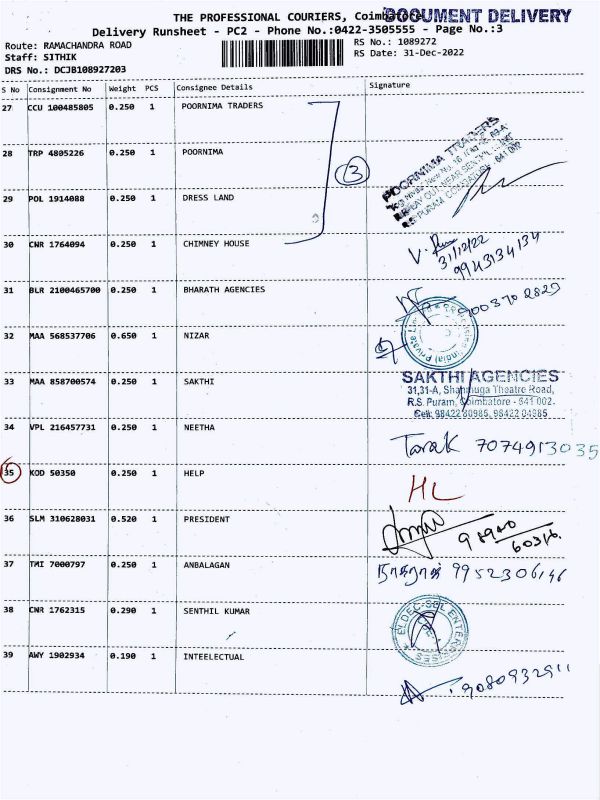 THE PROFESSIONAL COURIERS, Coimbatore
DOCUMENT DELIVERY
Delivery Runsheet - PC2 - Phone No.:0422-3505555 - Page No.:3
Route: RAMACHANDRA ROAD
RS No.: 1089272
Staff: SITHIK
RS Date: 31-Dec-2022
DRS No.: DCJB108927203
S No Consignment No Weight PCS Consignee Details Signature
27 CCU 100485805 0.250 1 POORNIMA TRADERS
28 TRP 4805226 0.250 1 POORNIMA
3
POORNIMA TRADERS
29 POL 1914088 0.250 1 DRESS LAND
30 CNR 1764094 0.250 1 CHIMNEY HOUSE
31/12/22
9943134134
31 BLR 2100465700 0.250 1 BHARATH AGENCIES
32 MAA 568537706 0.650 1 NIZAR
33 MAA 858700574 0.250 1 SAKTHI
SAKTHI AGENCIES
31,31-A, Shanmuga Theatre Road,
R.S. Puram, Coimbatore - 641 002.
Cell: 98422 80985, 98422 04985
34 VPL 216457731 0.250 1 NEETHA
Tarak 7074913035
35 KOD 50350 0.250 1 HELP
HL
36 SLM 310628031 0.520 1 PRESIDENT
37 TMI 7000797 0.250 1 ANBALAGAN
9952306146
38 CNR 1762315 0.290 1 SENTHIL KUMAR
39 AWY 1902934 0.190 1 INTEELECTUAL
9080932911